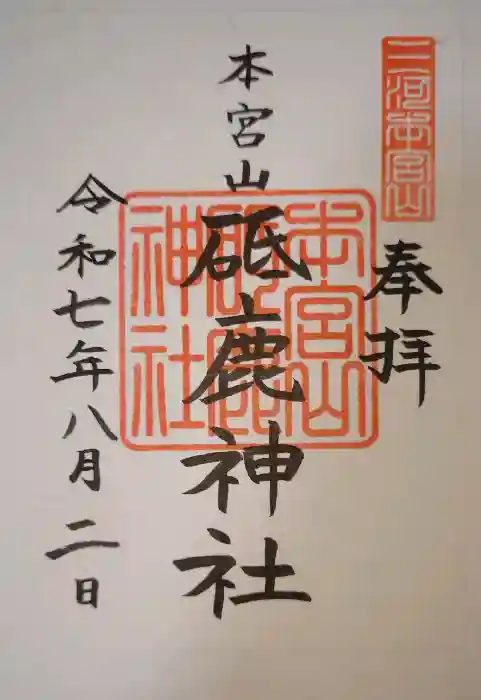 三河本宮山
奉拝
本宮山
砥鹿神社
本宮山
砥鹿
神社
令和七年八月二日